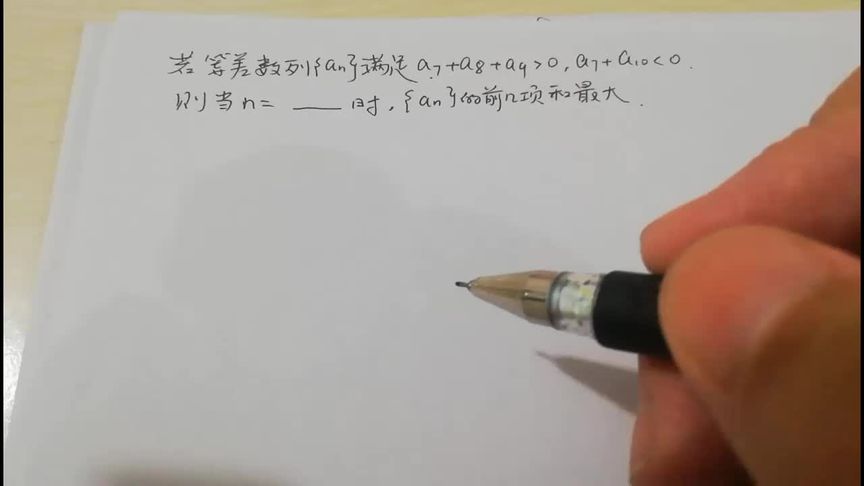 若等差数列{an}满足a7+a8+a9>0,a7+a10<0.
则当n=____时,{an}的前n项和最大.